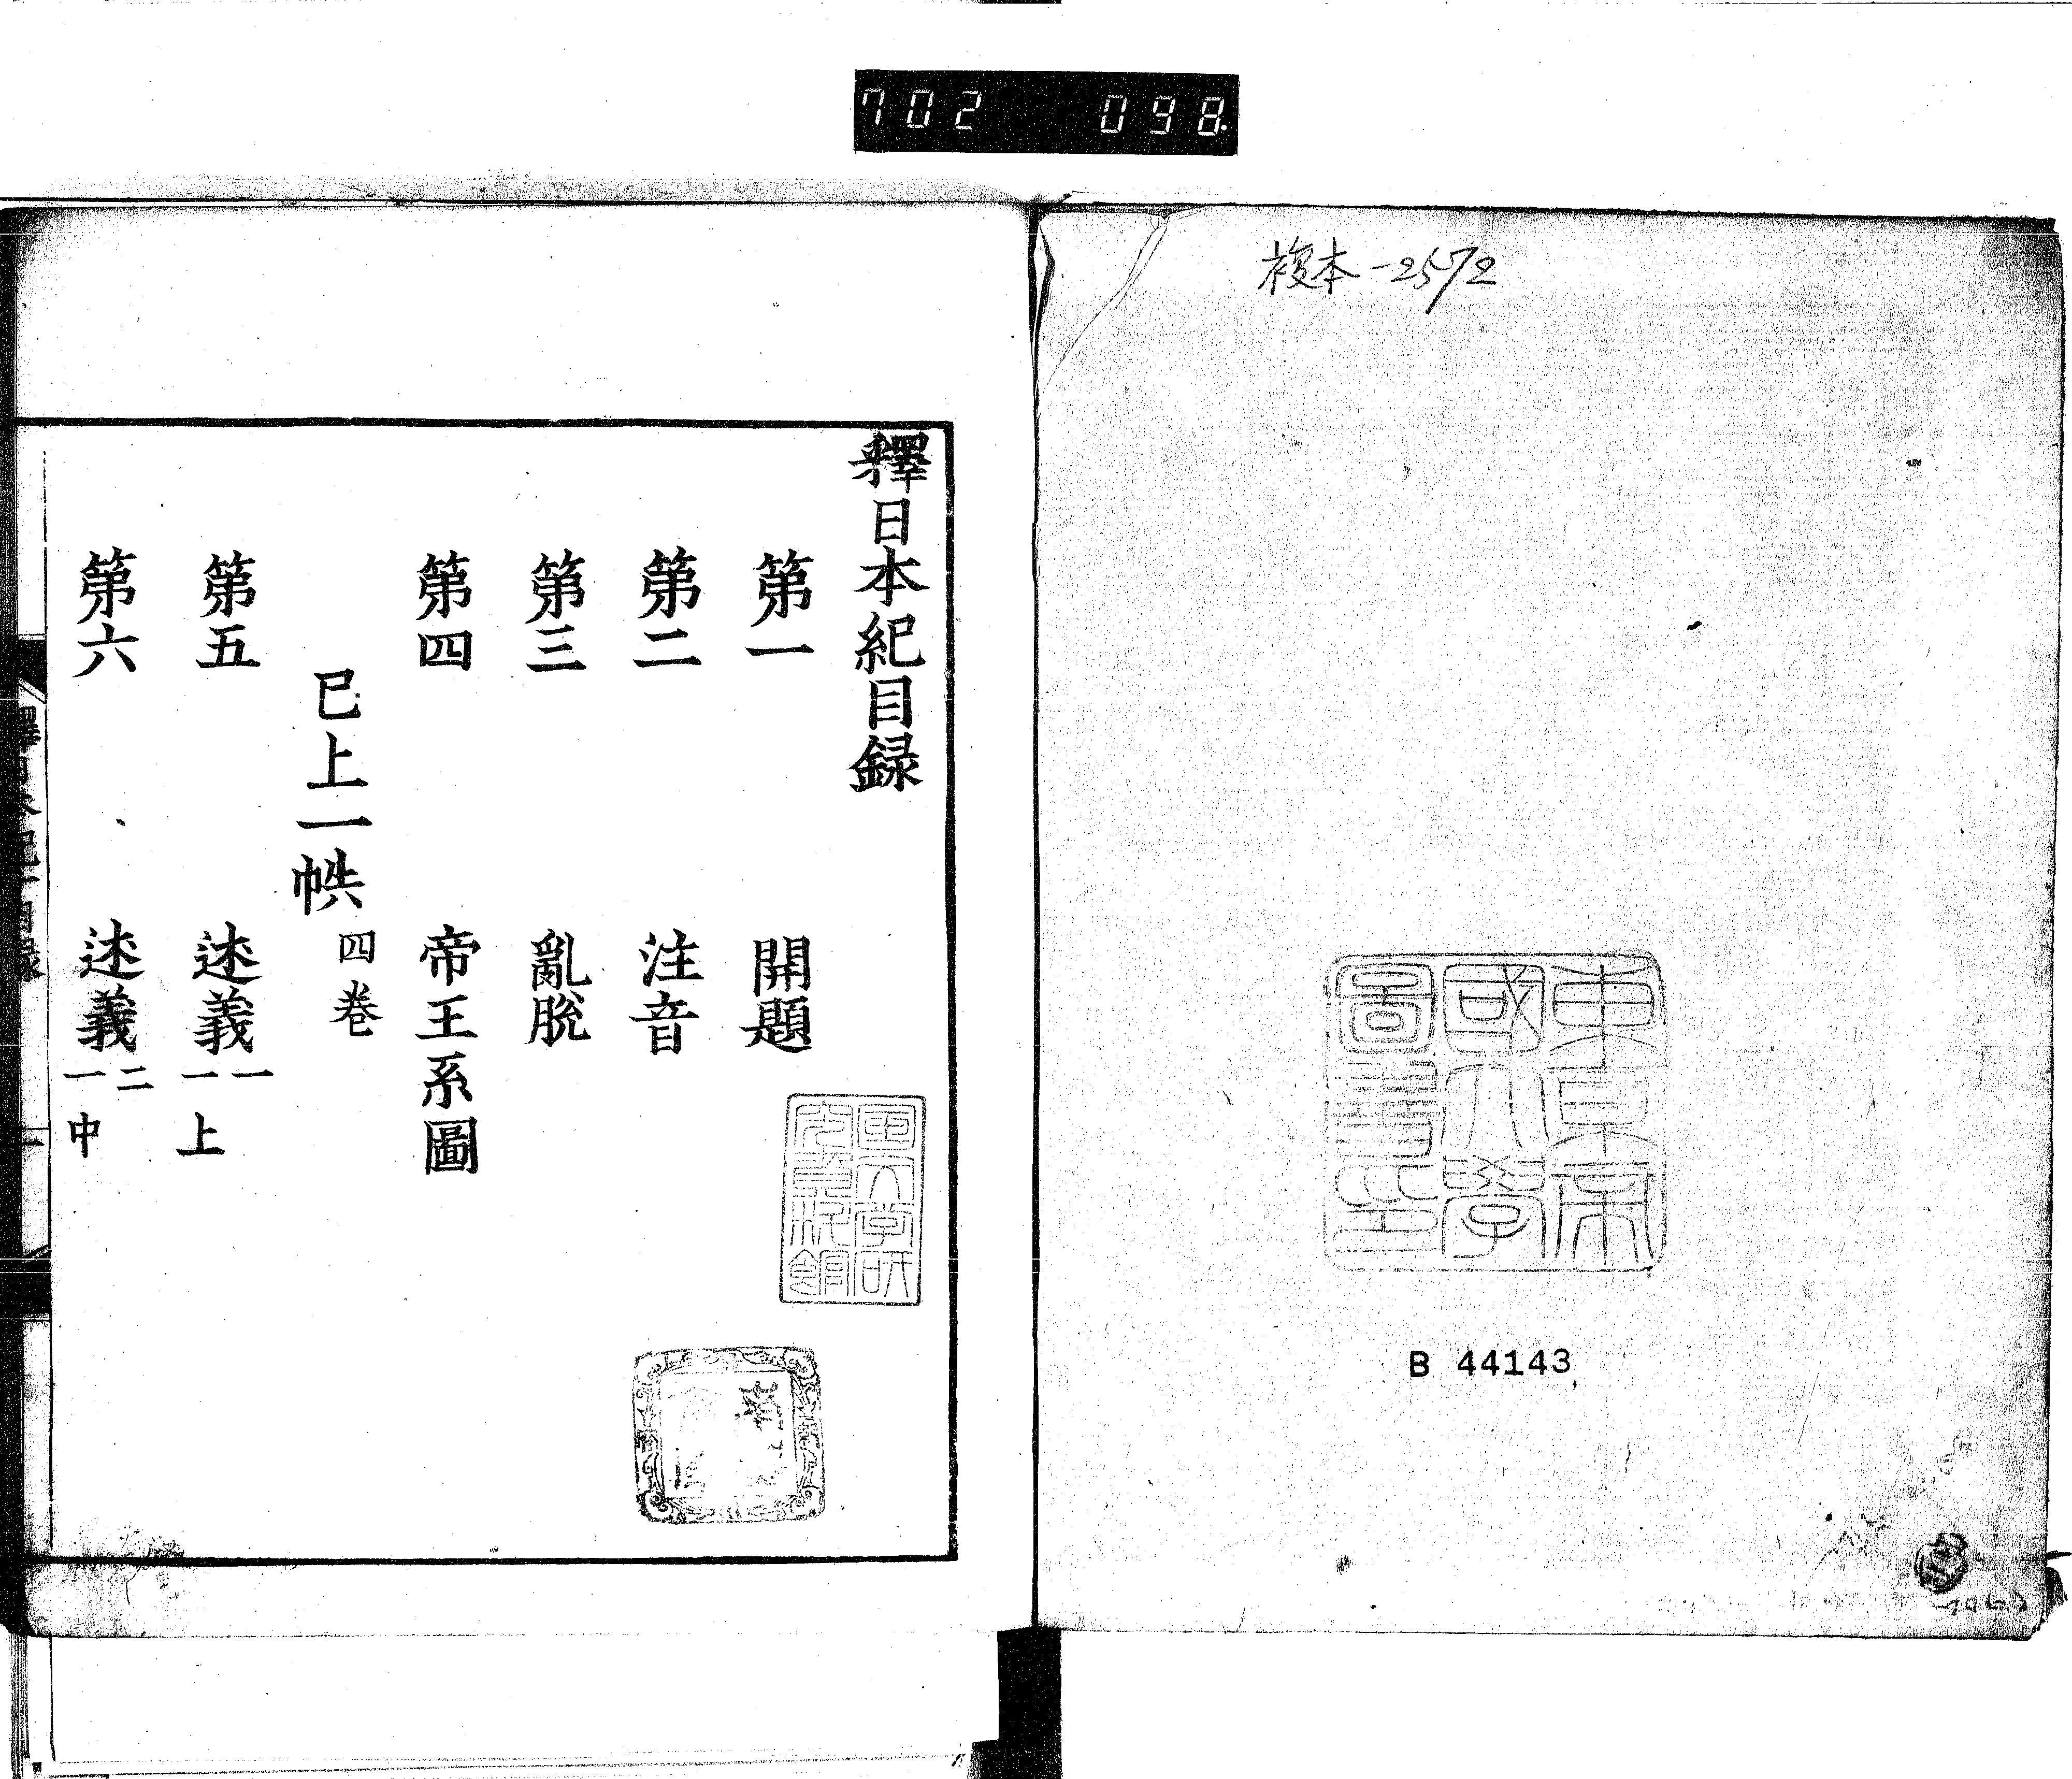 702 098.
複本-2572
東京帝
國大學
圖書印
B 44143
釋日本紀目録
第一 開題
第二 注音
第三 亂脫
第四 帝王系圖
已上一帙四巻
第五 述義一
一上
第六 述義二
一中